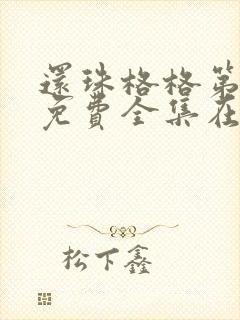 還珠格格第
免費全集在
松下鑫